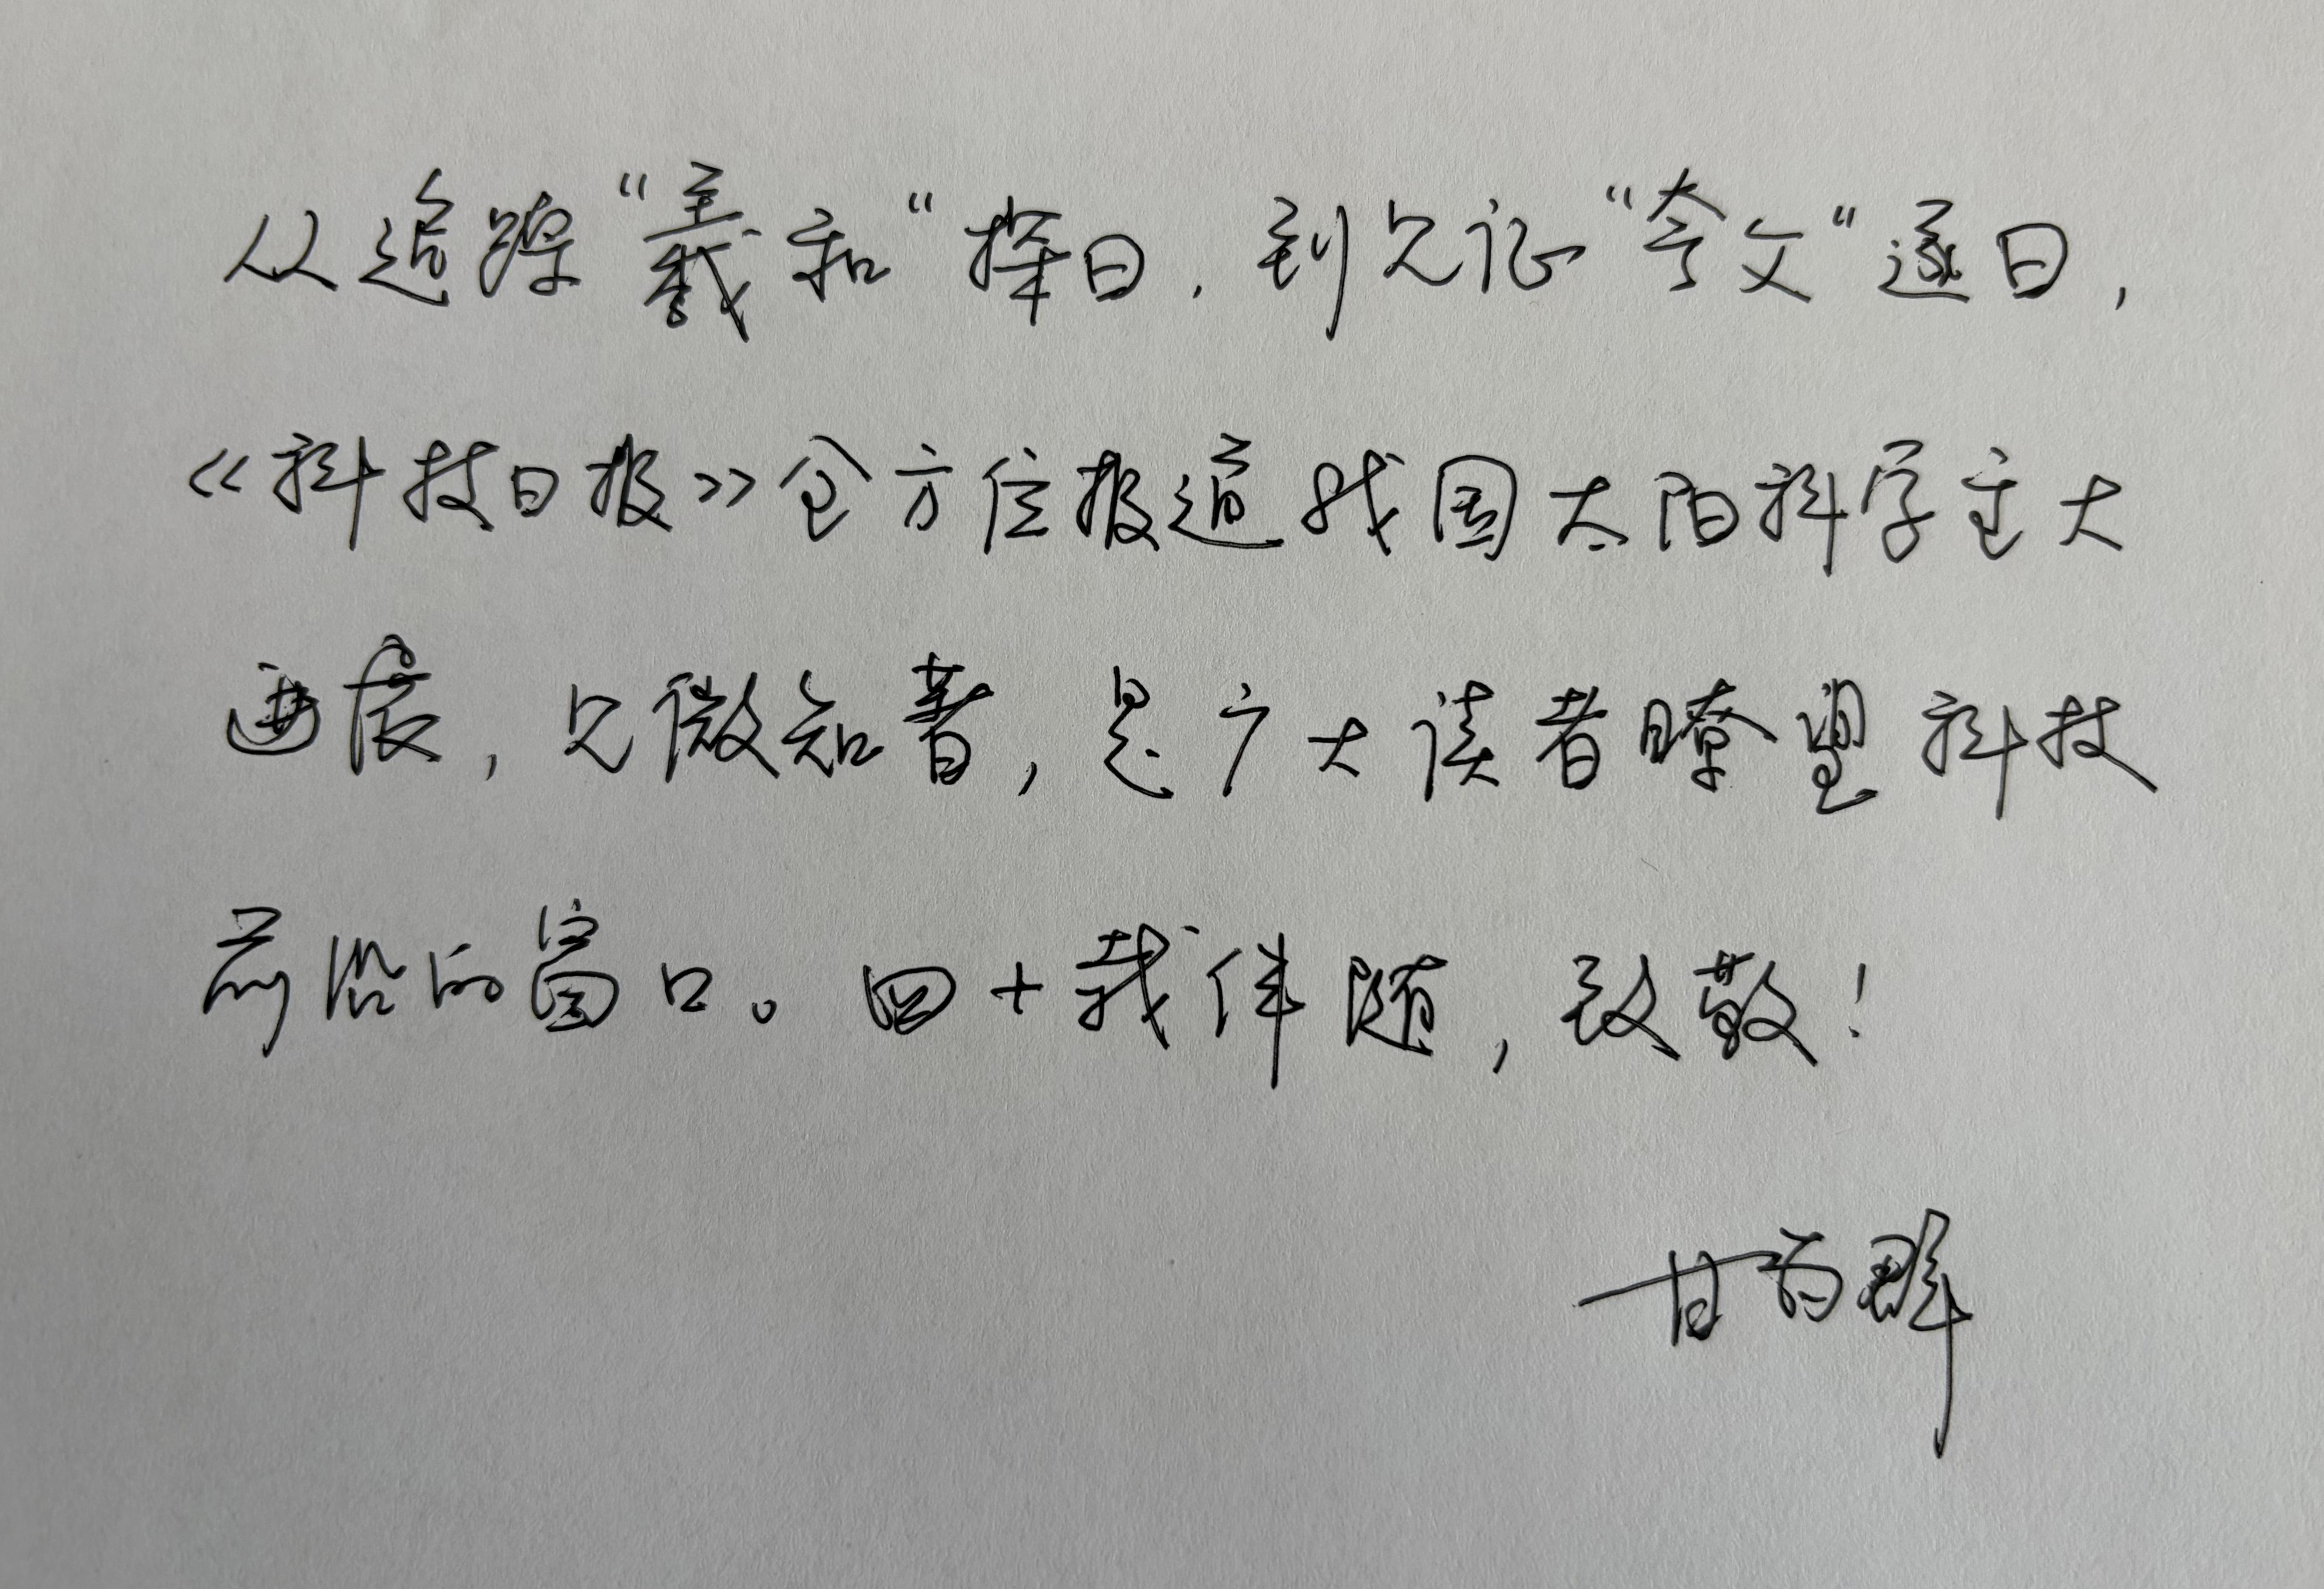 从追踪“羲和”探日，到见证“夸父”逐日，
《科技日报》全方位报道我国太阳科学重大
进展，见微知著，是广大读者瞭望科技
前沿的窗口。四十载伴随，致敬！
甘为群